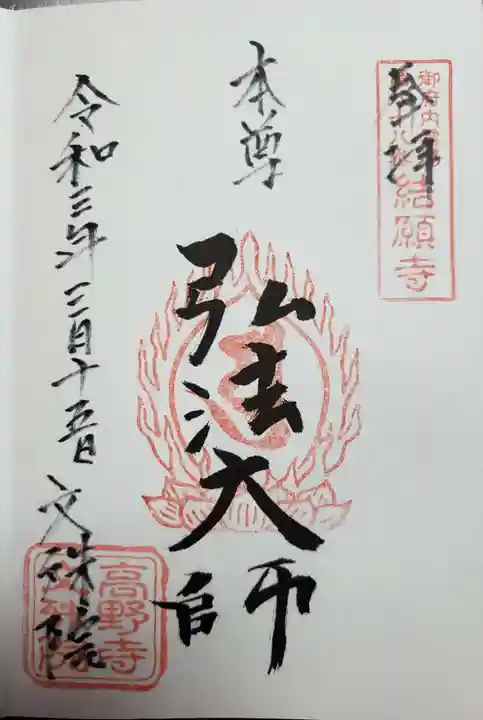 奉拝
御府内
八十八
結願寺
本尊
弘法大師
令和三年三月十五日
文殊院
高野寺
文殊院